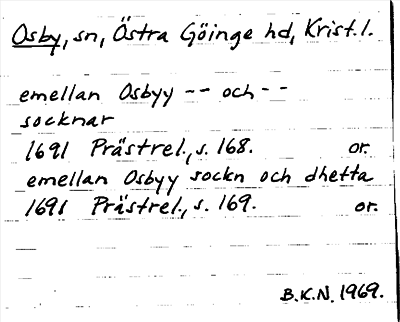 Osby, sn, Östra Göinge hd, Krist. l.
emellan Osbyy -- och --
socknar
1691 Prästrel., s. 168. or.
emellan Osbyy sockn och dhetta
1691 Prästrel., s. 169. or.
B.K.N. 1969.